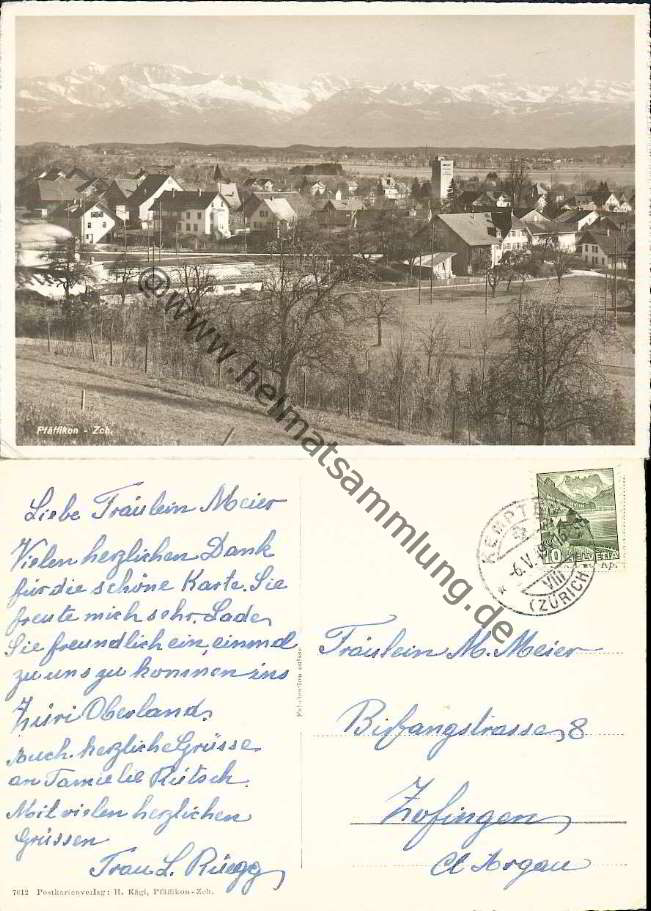 Pfäffikon - Zch.
©www.heimatsammlung.de
Liebe Fräulein Meier
Vielen herzlichen Dank
für die schöne Karte. Sie
freute mich sehr. Lade
Sie freundlich ein, einmal
zu uns zu kommen ins
Züri Oberland.
Auch herzliche Grüsse
an Familie Rütsch.
Mit vielen herzlichen
Grüssen
Frau L. Rüegg
7612 Postkartenverlag: H. Kägi, Pfäffikon-Zch.
-6.V.
VIII
(ZÜRICH)
HELVETIA
Fräulein M. Meier
Bifangstrasse 8
Zofingen
Ct Argau